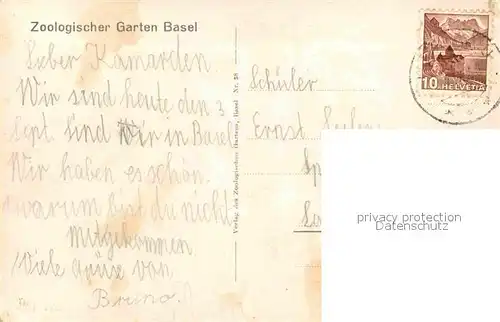 Zoologischer Garten Basel
Lieber Kamarden
Wir sind heute den 3
Sept. Sind Wir in Basel
Wir haben es schön.
warum bist du nicht
Mitgekommen
Viele grüse von
Bruno.
Verlag des Zoologischen Gartens, Basel Nr. 38
Schüler
Ernst
10 HELVETIA
privacy protection
Datenschutz